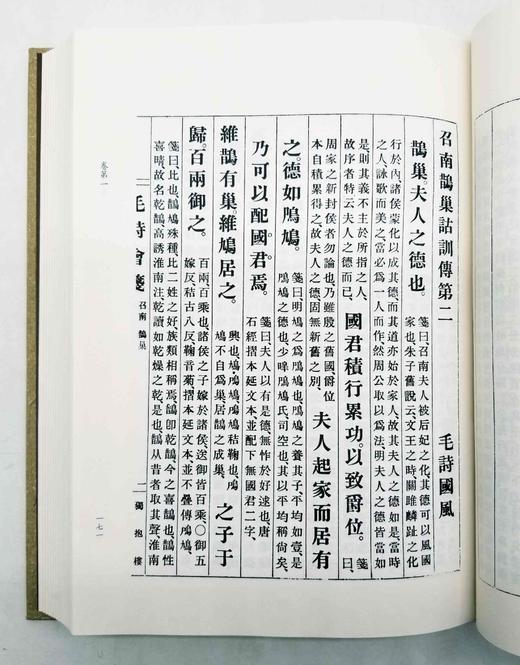 召南鵲巢詁訓傳第二 毛詩國風
鵲巢。夫人之德也。箋曰召南夫人被后妃之化其德可以風國
家也、朱子舊說云、文王之時關雎麟趾之化
行於內、諸侯蒙化以成其德、而其道亦始於家人、故其夫人之德如是、當時
之人、詠歌而美之、當必爲一人而作、然周公取以爲法、明夫人之德皆當如
是、則其義不主於所指之人、
故序者特云夫人之德而已、國君積行累功。以致爵位。箋曰、
周家之新封侯者勿論也、乃雖殷之舊國、爵位
本自積累得之、故夫人之德、固無新舊之別、夫人起家而居有
之。德如鳲鳩。箋曰、明鳩爲鳲鳩也、鳲鳩之養其子、平均如壹、是
鳲鳩之德也、少皡鳲鳩氏、司空也、其以平均稱尙矣、
乃可以配國君焉。箋曰夫人以有是德、無怍於好逑也、唐
石經、摺本延文本、並配下無國君二字、
維鵲有巢維鳩居之。興也、鳩、鳲鳩、鳲鳩秸鞠也、鳲
鳩不自爲巢、居鵲之成巢、之子于
歸。百兩御之。百兩、百乘也、諸侯之子嫁於諸侯、送御皆百乘○御五
嫁反、秸古八反、鞠音菊、摺本延文本並不疊傳鳲鳩、
箋曰、比也、鵲鳩殊種、比二姓之好、族類相稱焉、鵲卽乾鵲、今之喜鵲也、鵲性
喜晴、故名乾鵲、高誘淮南注、乾讀如乾燥之乾是也、鵲从昔者取其聲、淮南
卷第一
毛詩會箋
召南 鵲巢
獨抱樓
一七一